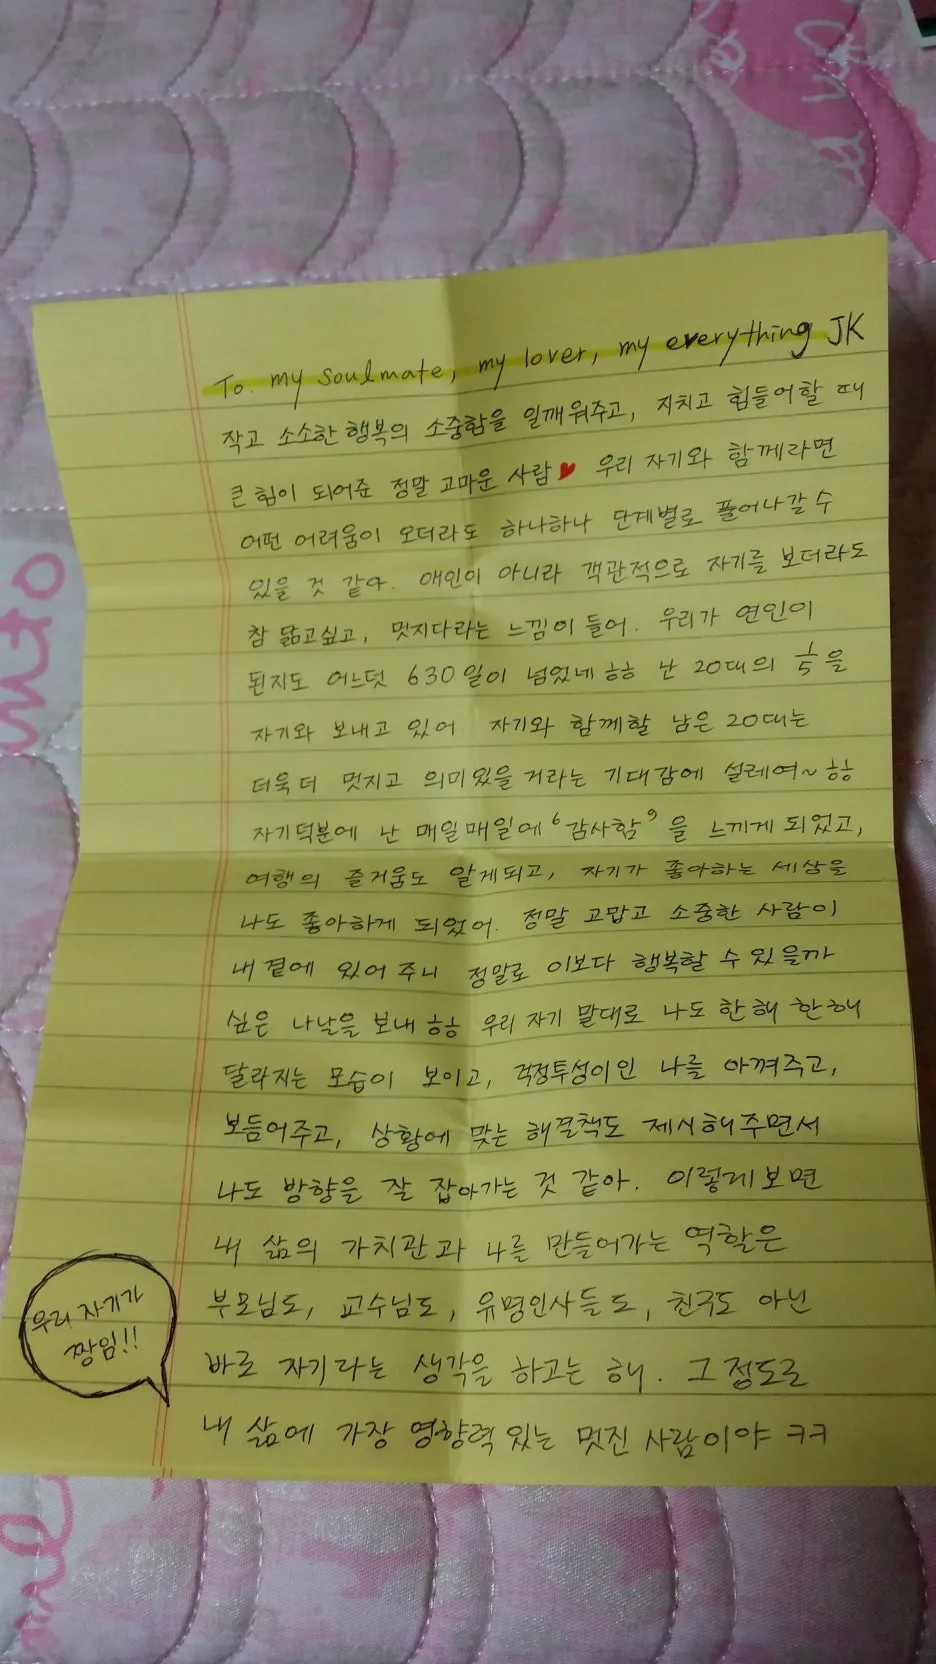 To. my soulmate, my lover, my everything JK
작고 소소한 행복의 소중함을 일깨워주고, 지치고 힘들어할 때
큰 힘이 되어준 정말 고마운 사람♥ 우리 자기와 함께라면
어떤 어려움이 오더라도 하나하나 단계별로 풀어나갈 수
있을 것 같아. 애인이 아니라 객관적으로 자기를 보더라도
참 닮고싶고, 멋지다라는 느낌이 들어. 우리가 연인이
된지도 어느덧 630일이 넘었네 ㅎㅎ 난 20대의 1/5을
자기와 보내고 있어 자기와 함께할 남은 20대는
더욱 더 멋지고 의미있을 거라는 기대감에 설레여~ ㅎㅎ
자기덕분에 난 매일매일에 '감사함'을 느끼게 되었고,
여행의 즐거움도 알게되고, 자기가 좋아하는 세상을
나도 좋아하게 되었어. 정말 고맙고 소중한 사람이
내 곁에 있어 주니 정말로 이보다 행복할 수 있을까
싶은 나날을 보내 ㅎㅎ 우리 자기 말대로 나도 한해 한해
달라지는 모습이 보이고, 걱정투성이인 나를 아껴주고,
보듬어주고, 상황에 맞는 해결책도 제시해주면서
나도 방향을 잘 잡아가는 것 같아. 이렇게보면
내 삶의 가치관과 나를 만들어가는 역할은
부모님도, 교수님도, 유명인사들도, 친구도 아닌
바로 자기라는 생각을 하고는 해. 그 정도로
내 삶에 가장 영향력 있는 멋진 사람이야 ㅋㅋ
우리 자기가
짱임!!